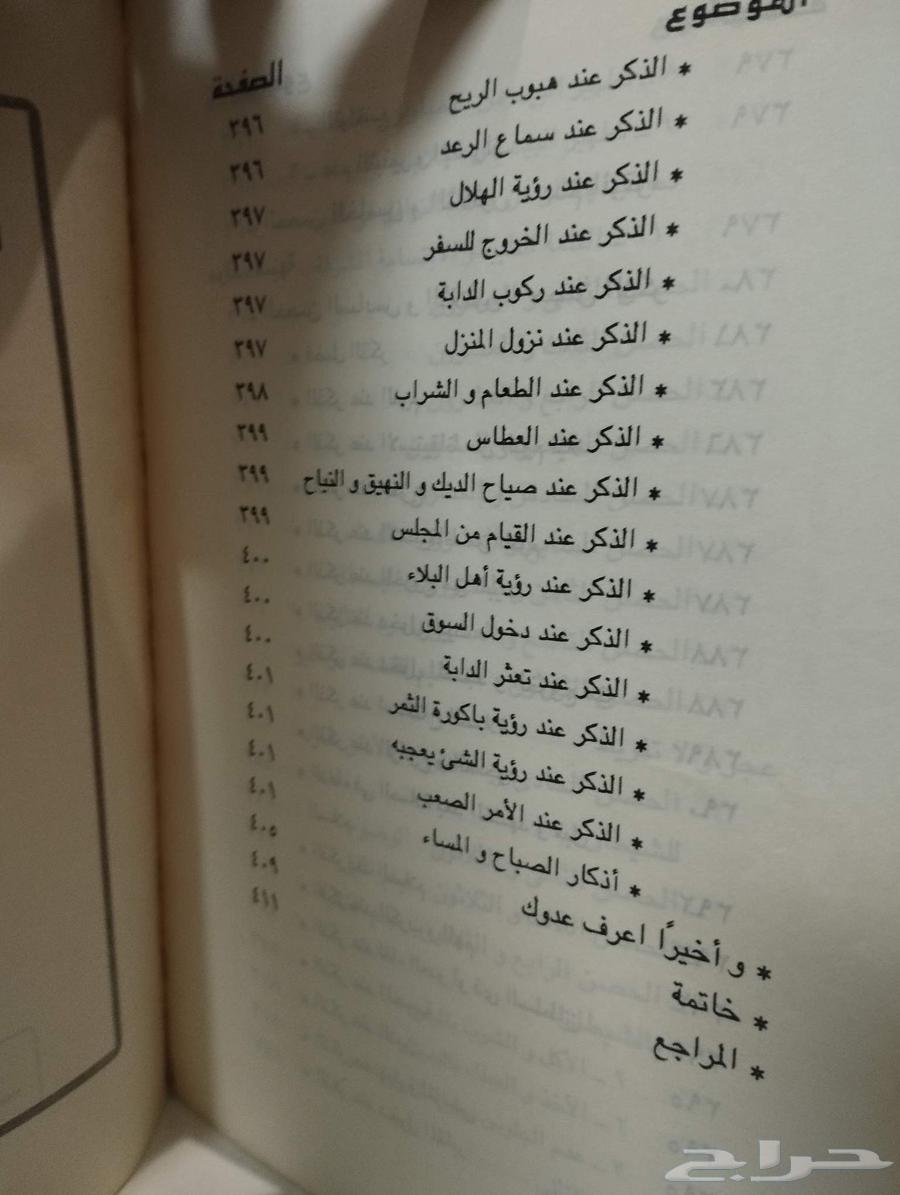 الموضوع الصفحة
* الذكر عند هبوب الريح ٣٩٦
* الذكر عند سماع الرعد ٣٩٦
* الذكر عند رؤية الهلال ٣٩٧
* الذكر عند الخروج للسفر ٣٩٧
* الذكر عند ركوب الدابة ٣٩٧
* الذكر عند نزول المنزل ٣٩٧
* الذكر عند الطعام و الشراب ٣٩٨
* الذكر عند العطاس ٣٩٩
* الذكر عند صياح الديك و النهيق و النباح ٣٩٩
* الذكر عند القيام من المجلس ٣٩٩
* الذكر عند رؤية أهل البلاء ٤٠٠
* الذكر عند دخول السوق ٤٠٠
* الذكر عند تعثر الدابة ٤٠٠
* الذكر عند رؤية باكورة الثمر ٤٠١
* الذكر عند رؤية الشئ يعجبه ٤٠١
* الذكر عند الأمر الصعب ٤٠١
* أذكار الصباح و المساء ٤٠١
* و أخيرًا اعرف عدوك ٤٠٥
* خاتمة ٤٠٩
* المراجع ٤١١
حراج